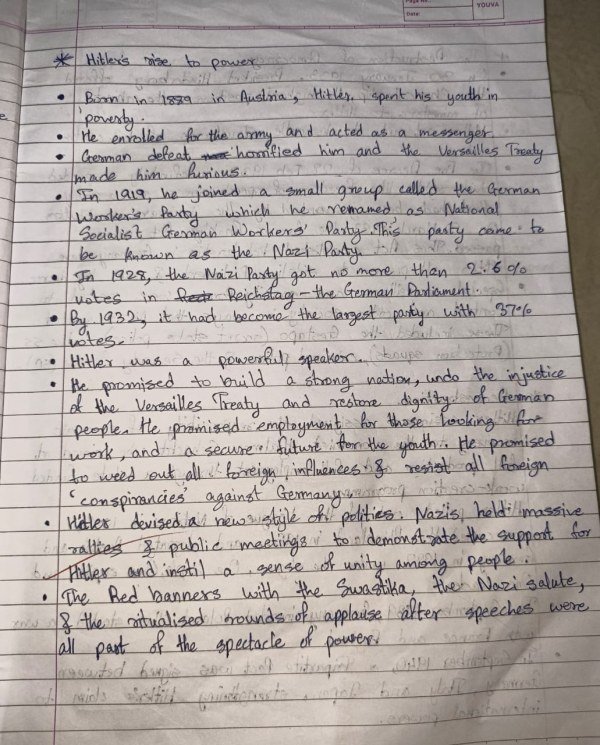 Page No.
Date:
YOUVA
* Hitler's rise to power
• Born in 1889 in Austria, Hitler spent his youth in
poverty.
• He enrolled for the army and acted as a messenger.
• German defeat horrified him and the Versailles Treaty
made him furious.
• In 1919, he joined a small group called the German
Worker's Party which he renamed as National
Socialist German Workers' Party. This party came to
be known as the Nazi Party.
• In 1928, the Nazi Party got no more than 2.6%
votes in Reichstag - the German Parliament.
• By 1932, it had become the largest party with 37%
votes.
• Hitler was a powerful speaker.
• He promised to build a strong nation, undo the injustice
of the Versailles Treaty and restore dignity of German
people. He promised employment for those looking for
work, and a secure future for the youth. He promised
to weed out all foreign influences & resist all foreign
'conspirancies' against Germany.
• Hitler devised a new style of politics. Nazis held massive
rallies & public meetings to demonstrate the support for
Hitler and instil a sense of unity among people.
• The Red banners with the Swastika, the Nazi salute,
& the ritualised rounds of applause after speeches were
all part of the spectacle of power.